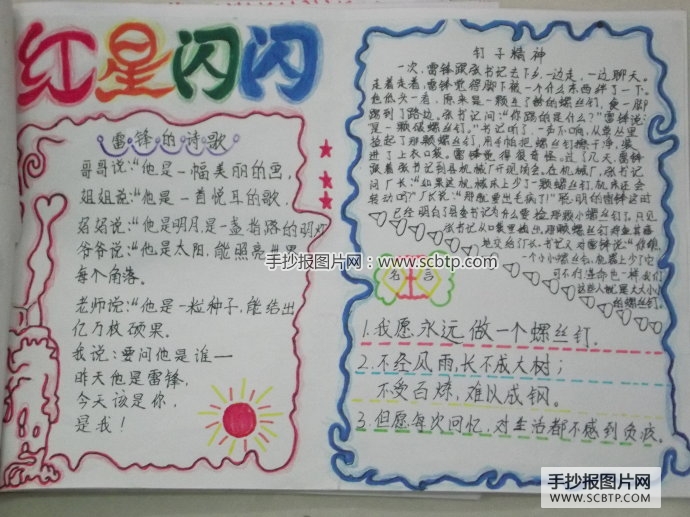 红星闪闪
雷锋的诗歌
哥哥说:“他是一幅美丽的画,
姐姐说:“他是一首悦耳的歌,
妈妈说:“他是明月,是一盏指路的明灯
爷爷说:“他是太阳,能照亮世界
每个角落。
老师说:“他是一粒种子,能结出
亿万枚硕果。
我说:要问他是谁一
昨天他是雷锋,
今天该是你,
是我!
钉子精神
一次,雷锋跟张书记去下乡,一边走,一边聊天。
走着走着,雷锋觉得脚下被一个什么东西绊了一下。
他低头一看,原来是一颗生了锈的螺丝钉,便一脚
踢到了路边,张书记问:“你踢的是什么?”雷锋说:
“是一颗破螺丝钉,”书记听了,一声不响,从草丛里
拾起了那颗螺丝钉,用手帕把螺丝钉擦干净,装
进了上衣口袋。雷锋觉得很奇怪。过了几天,雷锋
跟着张书记到县机械厂开现场会。在机械厂,张书记
问厂长:“如果这机械床上少了一颗螺丝钉,机床还会
转动吗?”厂长说:“那就要出毛病了!”聪明的雷锋这时
已经明白了县委书记为什么要捡那颗小螺丝钉,只见
张书记从口袋里掏出那颗螺丝钉
地交给厂长,书记又对雷锋说:“你瞧,
一个小小螺丝钉,机器上少了它
可不行,革命也一样,我们
这些人就是大大小小
的螺丝钉。
名言
1.我愿永远做一个螺丝钉.
2.不经风雨,长不成大树;
不受百炼,难以成钢。
3.但愿每次回忆,对生活都不感到负疚。
手抄报图片网:www.scbtp.com
手抄报图片网
WWW.SCBTP.COM